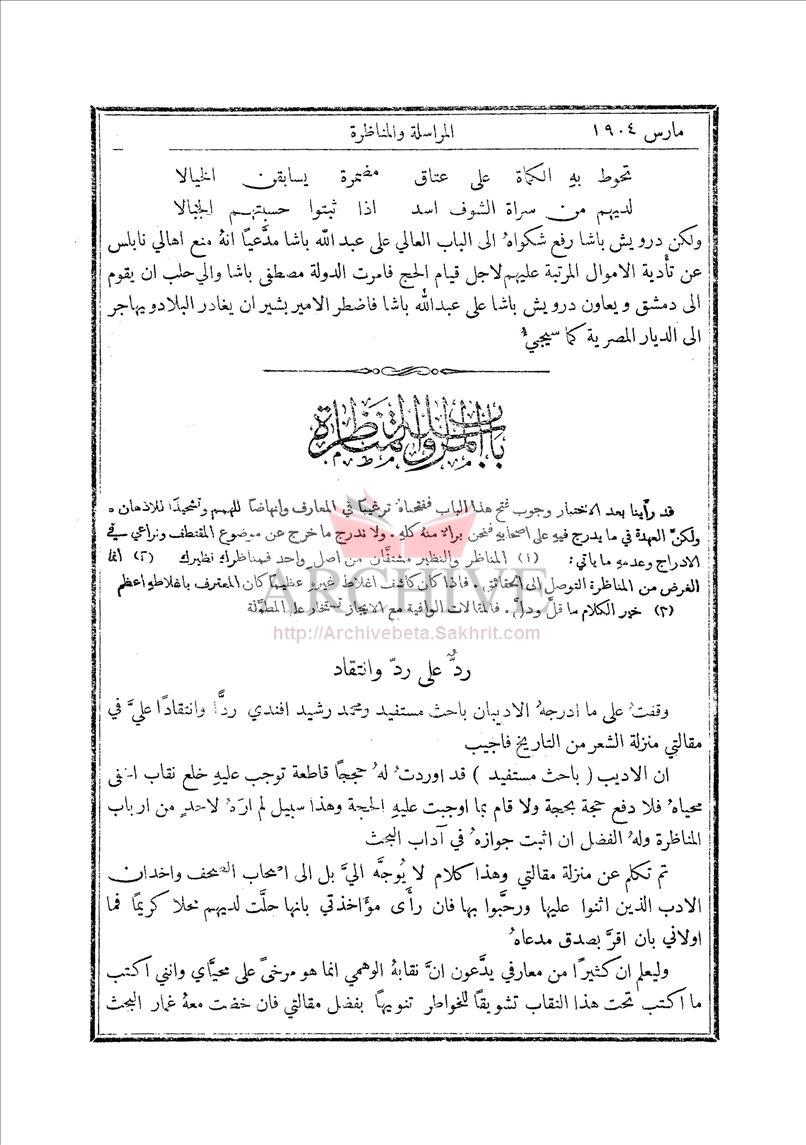 مارس ١٩٠٤ المراسلة والمناظرة
تحوط بهِ الكماة على عتاق مضمرة يسابقن الخيالا
لديهم من سراة الشوف اسد اذا ثبتوا حسبتهم الجبالا
ولكن درويش باشا رفع شكواهُ الى الباب العالي على عبد الله باشا مدَّعياً انهُ منع اهالي نابلس
عن تأدية الاموال المرتبة عليهم لاجل قيام الحج فامرت الدولة مصطفى باشا والي حلب ان يقوم
الى دمشق ويعاون درويش باشا على عبدالله باشا فاضطر الامير بشير ان يغادر البلاد ويهاجر
الى الديار المصرية كما سيجيءُ
باب المراسلة والمناظرة
قد رأينا بعد الاختبار وجوب فتح هذا الباب ففتحناهُ ترغيباً في المعارف وانهاضاً للهمم وتشحيذاً للاذهان ٠
ولكنَّ العهدة في ما يدرج فيهِ على اصحابهِ فنحن برالا منهُ كلهِ ٠ ولا ندرج ما خرج عن موضوع المقتطف ونراعي في
الادراج وعدمهِ ما ياتي : (١) المناظر والنظير مشتقَّان من اصل واحد فمناظرك نظيرك (٢) انما
الغرض من المناظرة التوصل الى الحقائق ٠ فاذا كان كاشف اغلاط غيرهِ عظيماً كان المعترف باغلاطهِ اعظم
(٣) خير الكلام ما قلَّ ودلَّ ٠ فالمقالات الوافية مع الايجاز تستخار على المطوَّلة
ARCHIVE
http://Archivebeta.Sakhrit.com
ردٌّ على ردّ وانتقاد
وقفتُ على ما ادرجهُ الاديبان باحث مستفيد ومحمد رشيد افندي ردًّا وانتقادًا عليَّ في
مقالتي منزلة الشعر من التاريخ فاجيب
ان الاديب ( باحث مستفيد ) قد اوردتُ لهُ حججاً قاطعة توجب عليهِ خلع نقاب اخفى
محياهُ فلا دفع حجة بحجة ولا قام بما اوجبت عليهِ الحجة وهذا سبيل لم ارَهُ لاحدٍ من ارباب
المناظرة ولهُ الفضل ان اثبت جوازهُ في آداب البحث
ثم تكلم عن منزلة مقالتي وهذا كلام لا يُوجَّه اليَّ بل الى اصحاب الصحف واخدان
الادب الذين اثنوا عليها ورحَّبوا بها فان رأَى مؤاخذتي بانها حلَّت لديهم نحلا كريماً فما
اولاني بان اقرَّ بصدق مدعاهُ
وليعلم ان كثيرًا من معارفي يدَّعون انَّ نقابهُ الوهمي انما هو مرخىً على محيَّاي وانني اكتب
ما اكتب تحت هذا النقاب تشويقاً للخواطر تنويهاً بفضل مقالتي فان خضت معهُ غمار البحث